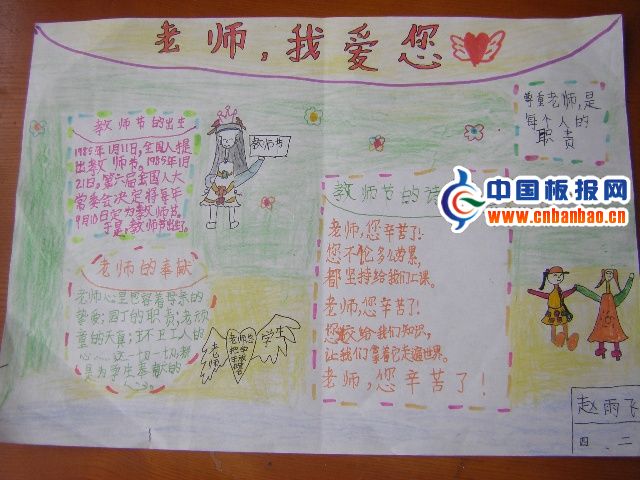 老师,我爱您
教师节的出生
1985年1月11日,全国人提
出教师节。1985年1月
21日,第六届全国人大
常委会决定将每年
9月10日定为教师节
于是,教师节出生了。
教师节
尊重老师,是
每个人的
职责
教师节的诗
老师,您辛苦了!
您不论多么劳累,
都坚持给我们上课。
老师,您辛苦了!
您教给我们知识,
让我们拿着它走遍世界。
老师,您辛苦了!
中国板报网
www.cnbanbao.cn
老师的奉献
老师心里包容着母亲的
挚爱;园丁的职责;老顽
童的天真;环卫工人的
心……这一切一切,都
是为学生奉献的
老师
学生
赵雨飞
四 二